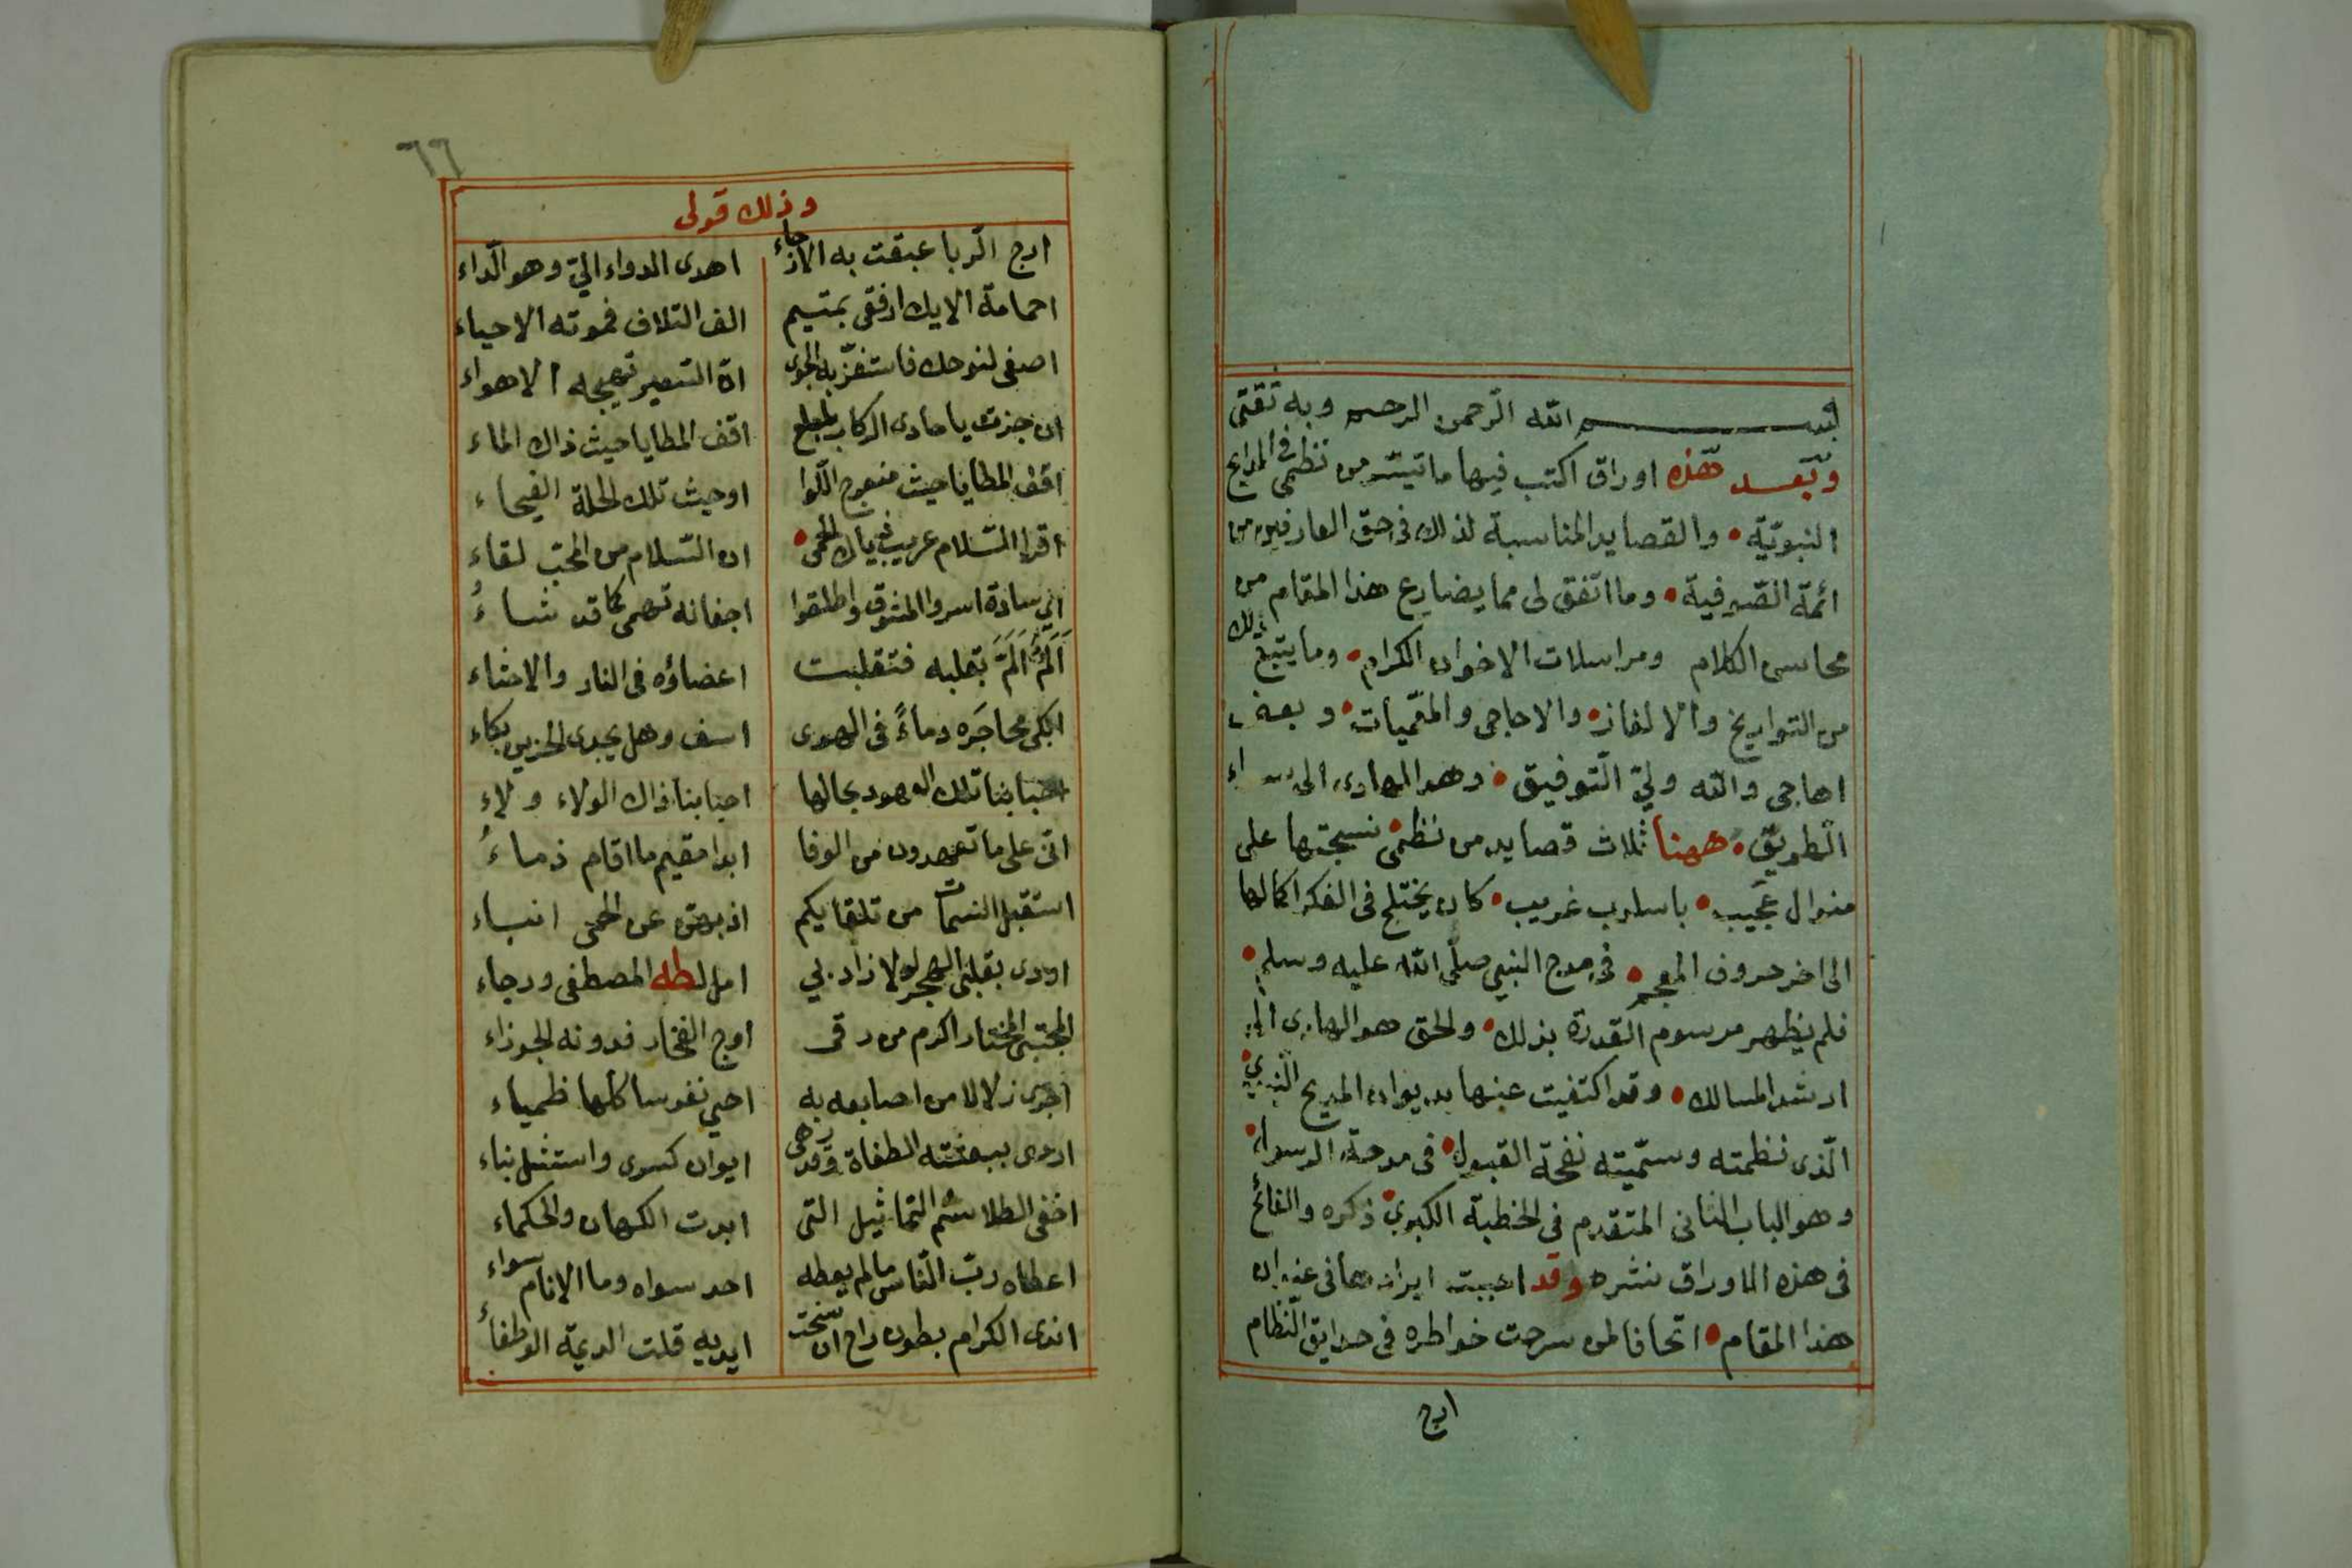 بسم الله الرحمن الرحيم وبه ثقتي
وبعد هذه اوراق اكتب فيها ما تيسر من نظمي في المدايح
النبويّة • والقصايد المناسبة لذلك في حق العارفين من
ائمة الصوفية • وما اتفق لي مما يضارع هذا المقام من
محاسن الكلام ومراسلات الاخوان الكرام • وما يتبع ذلك
من التواريخ والالغاز • والاحاجي والمعميات • وبعض
اهاجي والله وليّ التوفيق • وهو الهادي الى سواء
الطريق • ههنا ثلاث قصايد من نظمي نسجتها على
منوال عجيب • باسلوب غريب • كان يختلج في الفكر اكمالها
الى اخر حروف المعجم • في مدح النبي صلى الله عليه وسلم •
فلم يظهر مرسوم القدرة بذلك • والحق هو الهادي الى
ارشد المسالك • وقد اكتفيت عنها بديوان المديح النبوي •
الذي نظمته وسمّيته نفحة القبول • في مدحة الرسول •
وهو الباب الثاني المتقدم في الخطبة الكبرى ذكره والفائح
في هذه الاوراق نشره وقد احببت ايرادها في
هذا المقام • اتحافا لمن سرحت خواطره في حدايق النظام
ارج
٦٦
وذلك قولي
ارج الربا عبقت به الارجاء اهدى الدواء اليّ وهو الدّاء
احمامة الايك ارفقي بمتيم الف التلاف فموته الاحياء
اصغى لنوحك فاستفز به الجوى ان التهيجه الاهواء
ان جزت يا حادى الركاب بلعلع اقف المطايا حيث ذاك الماء
اقف المطايا حيث منعرج اللّوا او حيث تلك الحلة الفيحاء
اقرا السّلام عريب ذياك الحمى • ان السّلام من المحب لقاء
اي سادة اسروا المشوق واطلقوا اجفانه تهمى كما قد شاءُ
اَلَمٌ اَلَمَّ بقلبه فتقلبت اعضاؤه في النار والاحشاء
ابكى محاجَره دماءً في الهوى اسف وهل يجدى الحزين بكاء
احبابنا تلك العهود بحالها احبابنا ذاك الولاء ولاء
انى على ما تعهدون من الوفا ابدا مقيم ما اقام ذماءُ
استقبل النسمات من تلقايكم اذ عن الحمى انباء
اودى بقلبى الهجر لولا زاد بي امل لطه المصطفى ورجاء
المجتبى المختار اكرم من رقى اوج الفخار فدونه الجوزاء
اجرى زلالا من اصابعه به احيى نفوسا كلها ظمياء
اردى ببعثته الطغاة وقد رهى ايوان كسرى واستثل بناء
اخفى الطلاسم التماثيل التى ابدت الكهان والحكماء
اعطاه ربّ الناس ما لم يعطه احد سواه وما الانام سواء
اندى الكرام بطون راح ان سخت ايديه قلت الديمة الوطفاءُ